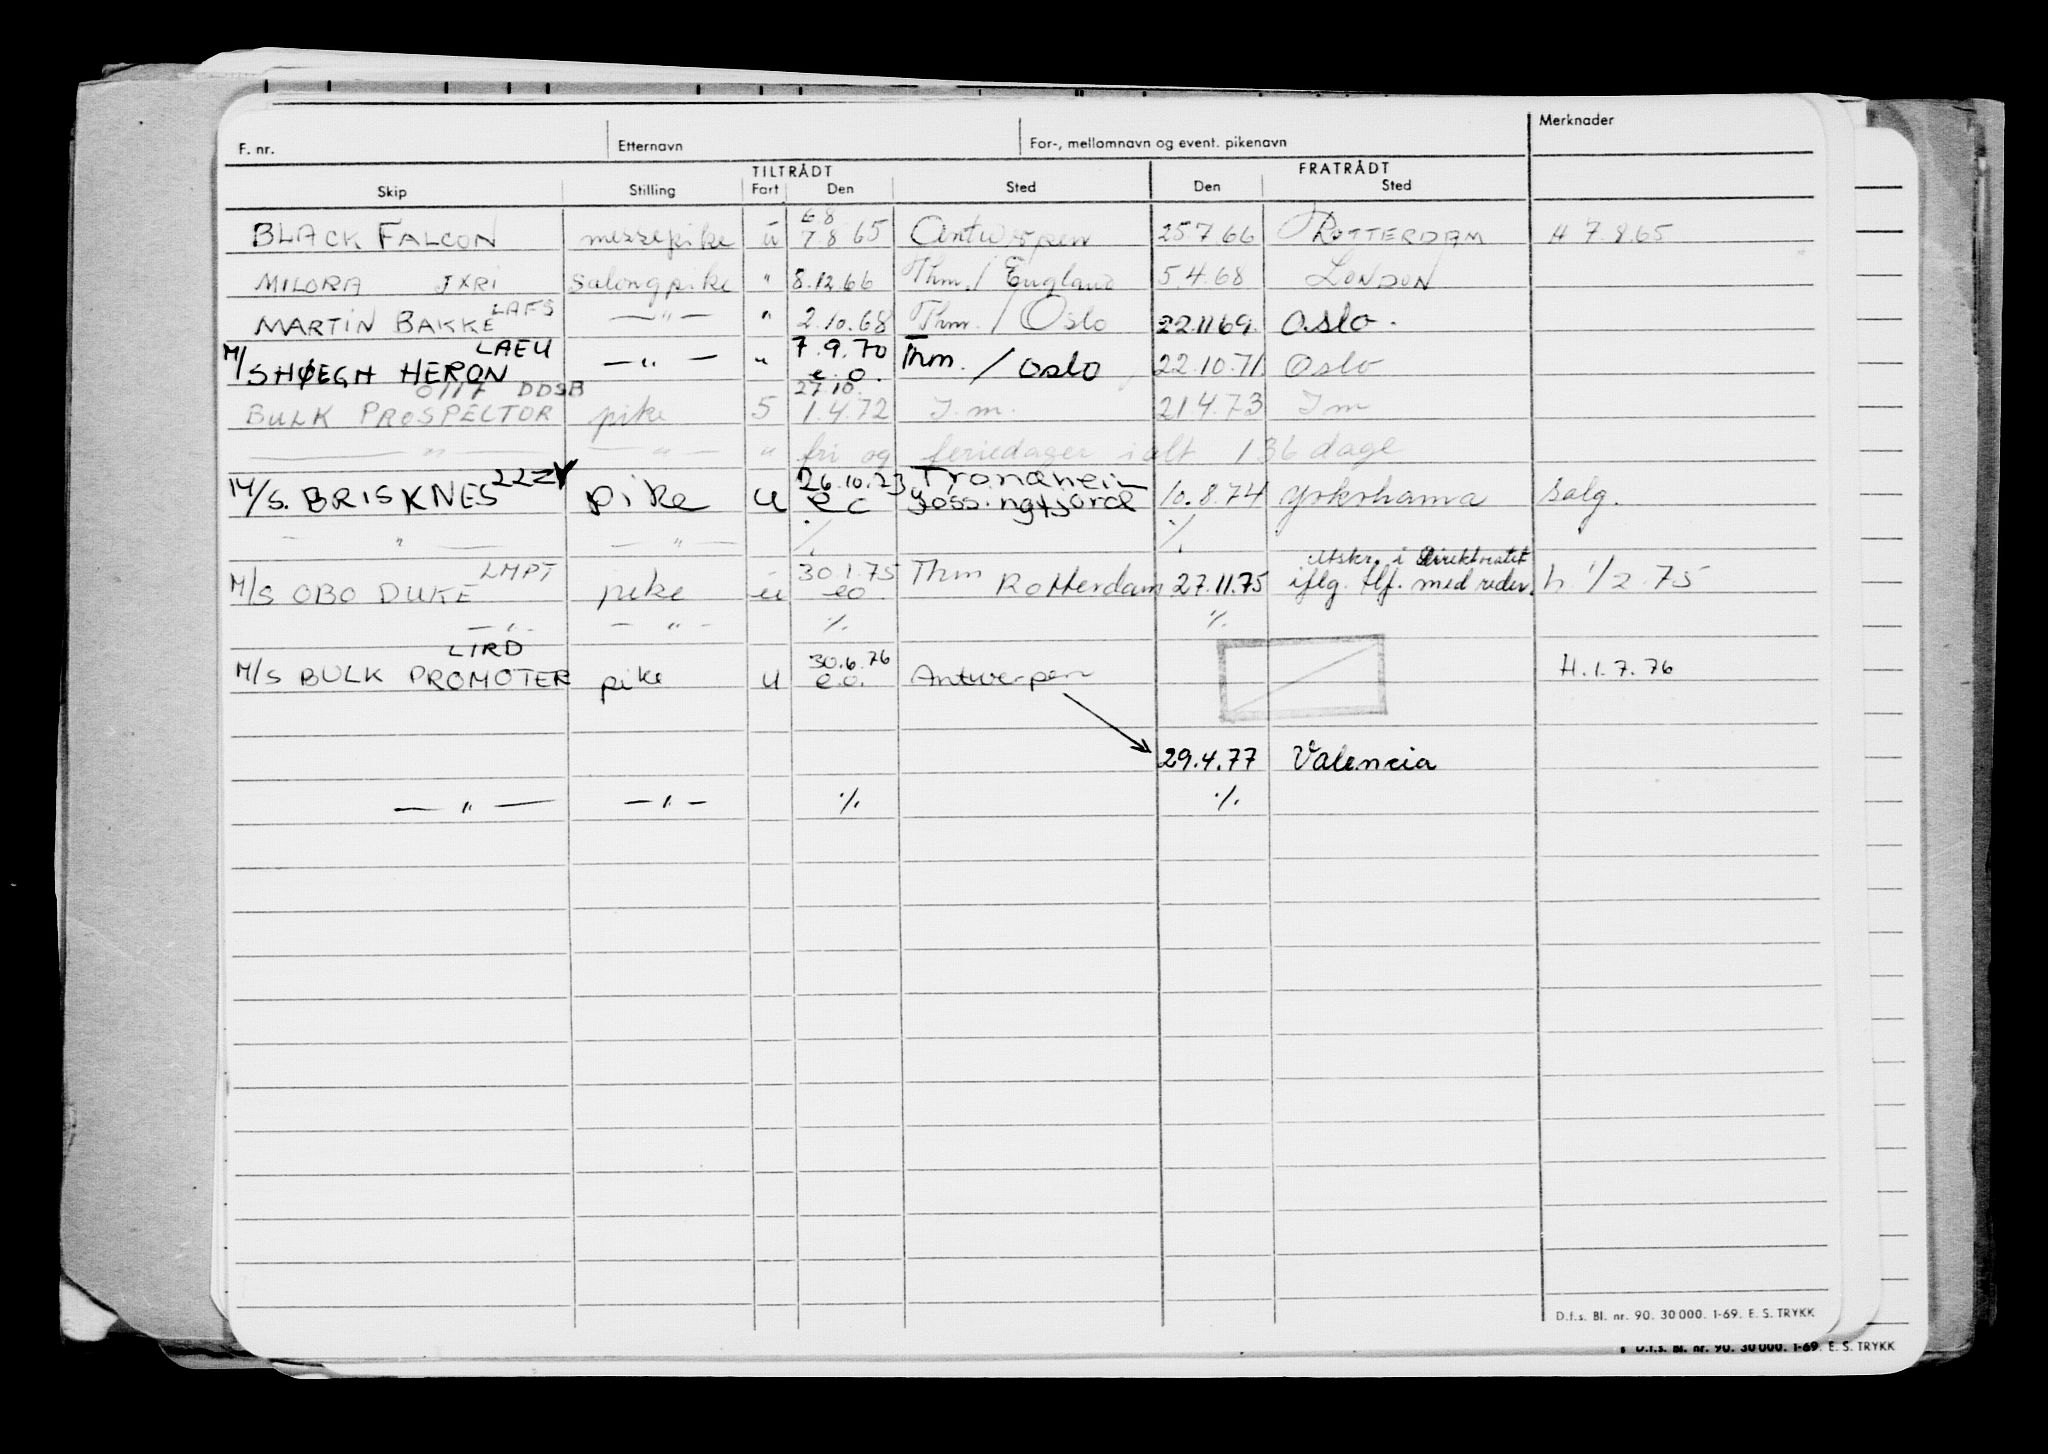 F. nr. Etternavn For-, mellomnavn og event. pikenavn Merknader
TILTRÅDT FRATRÅDT
Skip Stilling Fart Den Sted Den Sted
6 8
BLACK FALCON messepike u 7.8.65 Antwerpen 25.7.66 ROTTERDAM H 7.8.65
MILORA JXRI salongpike " 8.12.66 Thm. / England 5.4.68 LONDON
LAFS
MARTIN BAKKE — " — " 2.10.68 Thm. / Oslo 22.11 69. Oslo.
LAEU 7.9.70
M/SHØEGH HERON — " — " e.o. Thm. / Oslo 22.10.71 Oslo
0117 DDSB 27.10.
BULK PROSPECTOR pike 5 1.4.72 I.m. 21 4.73 I m
— " — — " — " fri og feriedager i alt 136 dage
22ZV 26.10.73 Trondheim
M/S. BRISKNES pike u e o Jøssingfjord 10.8.74 Yokohama Salg.
— " — — " — ./. ./.
LMPT 30.1.75 Thm Utskr. i Direktoratet
M/S OBO DUKE pike u eo. Rotterdam 27.11.75 iflg. tlf. med reder. h. 1/2.75
— " — — " — ./. ./.
LIRD 30.6.76
M/S BULK PROMOTER pike u e.o. Antwerpen H.1.7.76
29.4.77 Valencia
— " — — " — ./. ./.
D.f.s. Bl. nr. 90. 30 000. 1-69. E. S. TRYKK
D.f.s. Bl. nr. 90. 30 000. 1-69. E. S. TRYKK